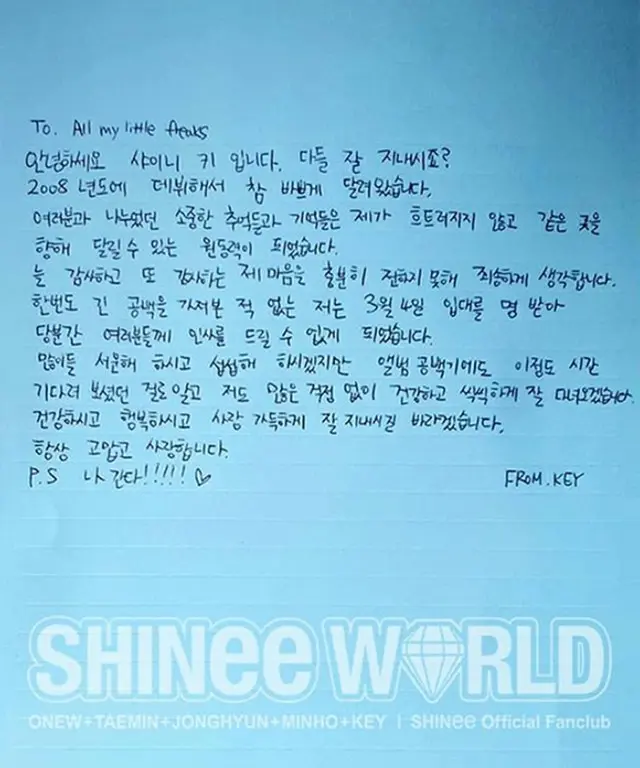 To. All my little freaks
안녕하세요 샤이니 키 입니다. 다들 잘 지내시죠?
2008 년도에 데뷔해서 참 바쁘게 달려왔습니다.
여러분과 나누었던 소중한 추억들과 기억들은 제가 흐트러지지 않고 같은 곳을
향해 달릴 수 있는 원동력이 되었습니다.
늘 감사하고 또 감사하는 제 마음을 충분히 전하지 못해 죄송하게 생각합니다.
한번도 긴 공백을 가져본 적 없는 저는 3월 4일 입대를 명 받아
당분간 여러분들께 인사를 드릴 수 없게 되었습니다.
많이들 서운해 하시고 섭섭해 하시겠지만 앨범 공백기에도 이정도 시간
기다려 보셨던 걸로 알고 저도 많은 걱정 없이 건강하고 씩씩하게 잘 다녀오겠습니다.
건강하시고 행복하시고 사랑 가득하게 잘 지내시길 바라겠습니다.
항상 고맙고 사랑합니다.
P.S 나 간다!!!!! ♡ FROM. KEY
SHINee WORLD
ONEW+TAEMIN+JONGHYUN+MINHO+KEY | SHINee Official Fanclub